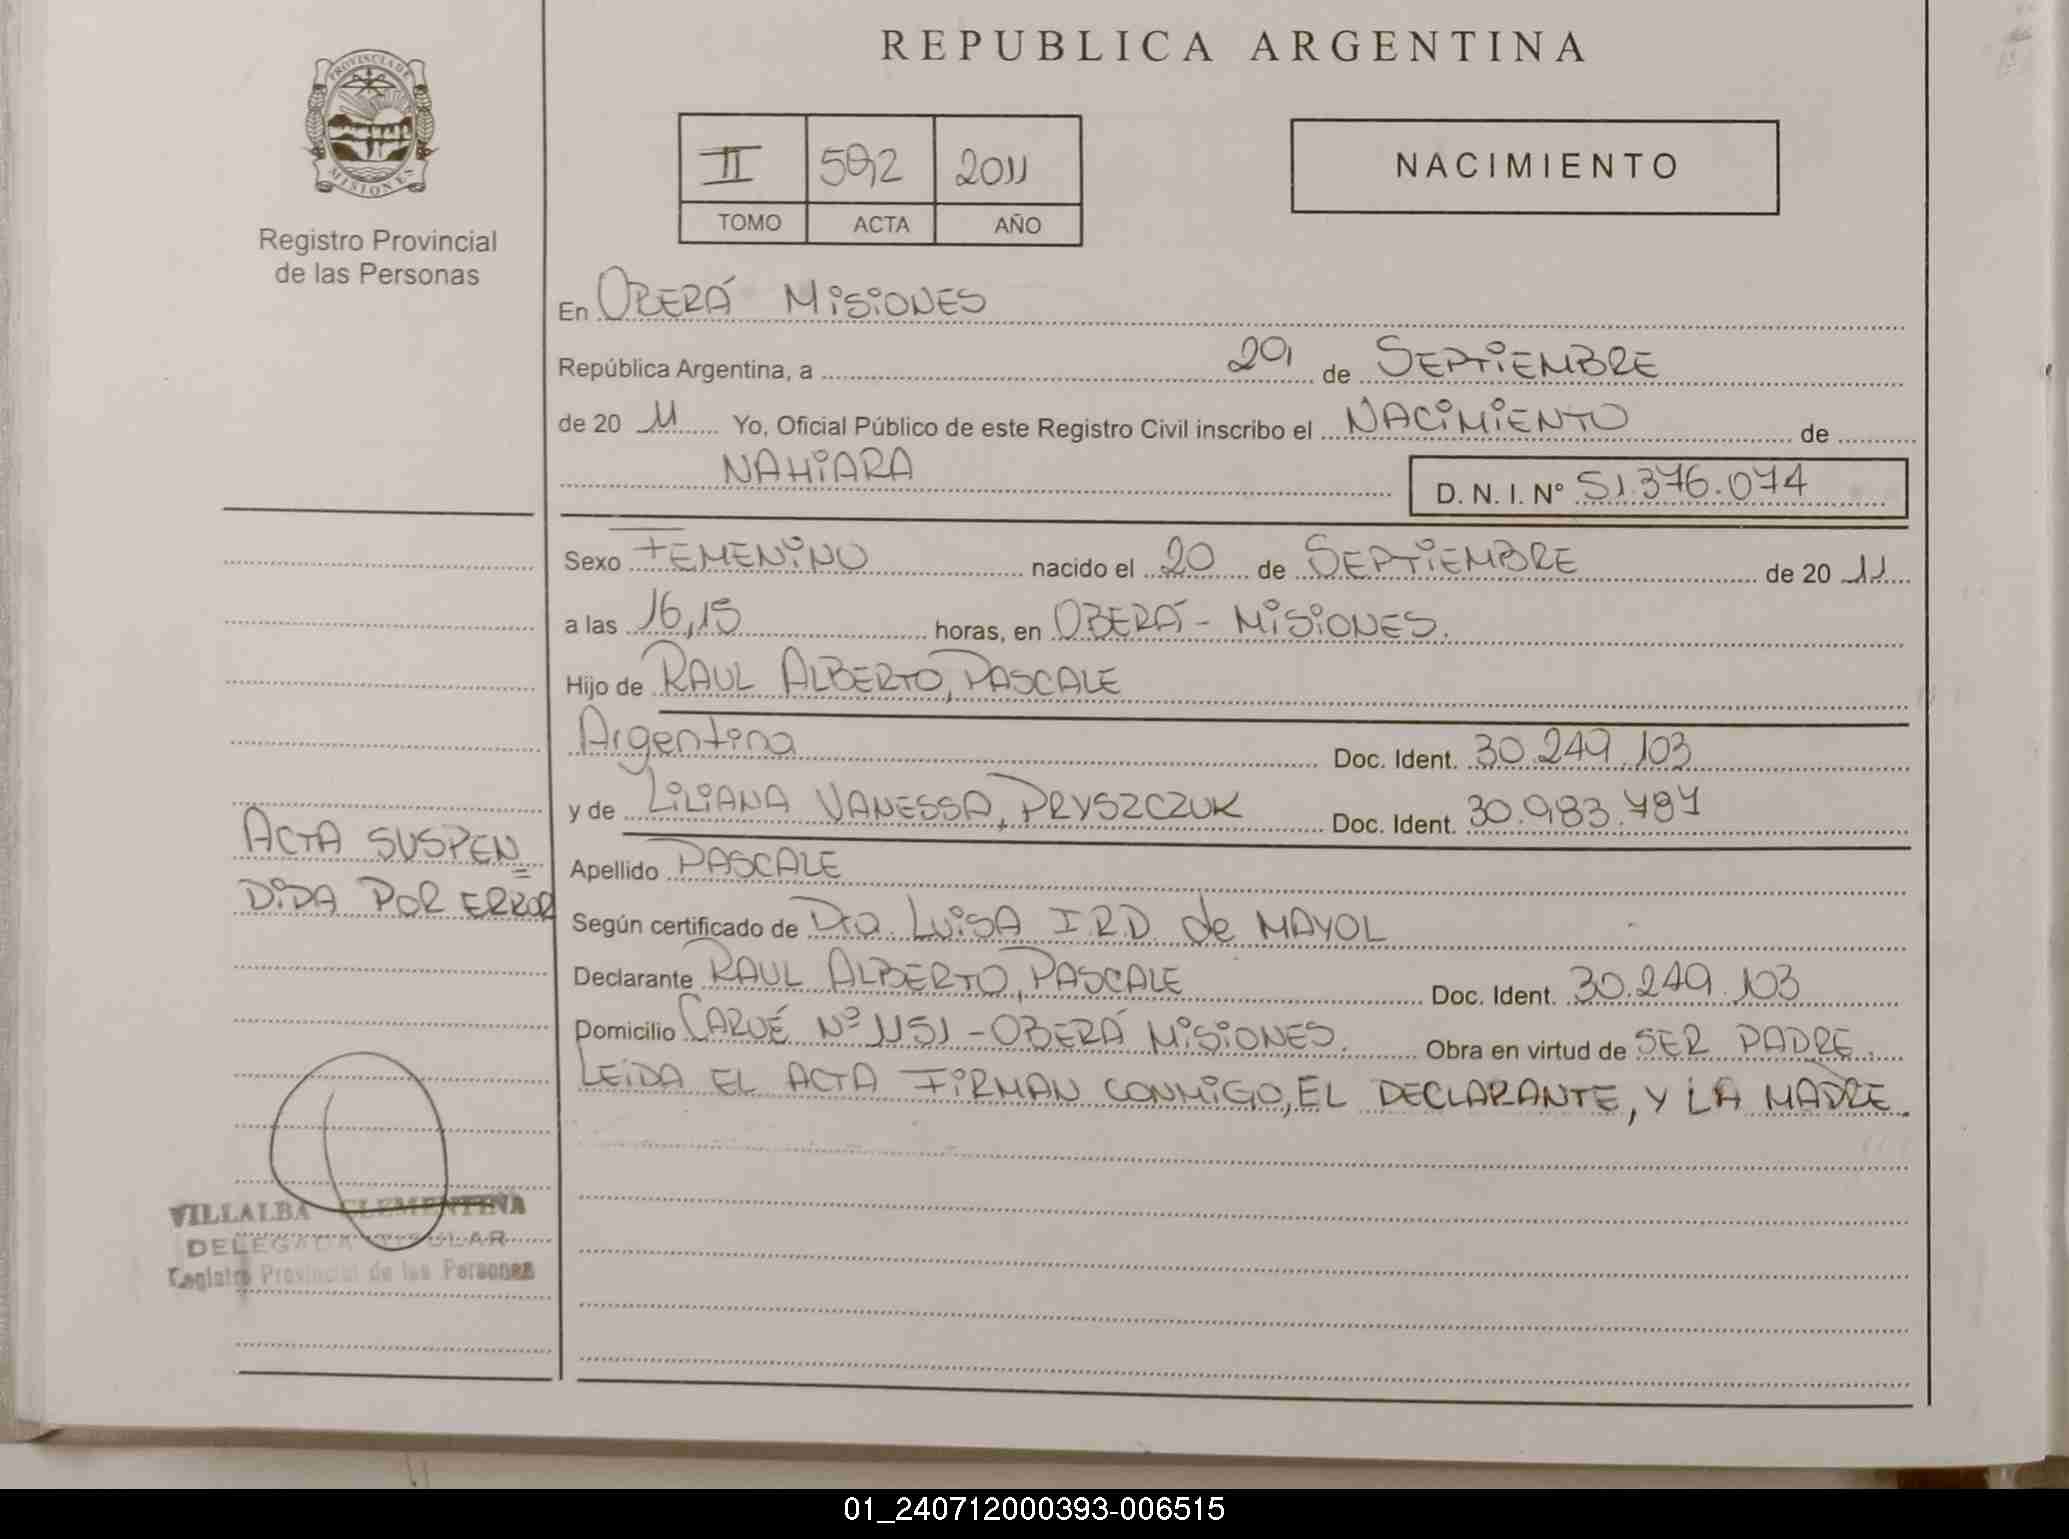 REPUBLICA ARGENTINA
PROVINCIA DE
MISIONES
Registro Provincial
de las Personas
II 592 2011
TOMO ACTA AÑO
NACIMIENTO
En OBERÁ MISIONES
República Argentina, a 29 de SEPTIEMBRE
de 20 11 Yo, Oficial Público de este Registro Civil inscribo el NACIMIENTO de
NAHIARA D. N. I. Nº 51.376.074
Sexo FEMENINO nacido el 20 de SEPTIEMBRE de 20 11
a las 16,15 horas, en OBERÁ - MISIONES.
Hijo de RAUL ALBERTO, PASCALE
Argentina Doc. Ident. 30.249.103
y de LILIANA VANESSA, PRYSZCZUK Doc. Ident. 30.983.787
Apellido PASCALE
Según certificado de Dra. LUISA I.R.D. de MAYOL
Declarante RAUL ALBERTO, PASCALE Doc. Ident. 30.249.103
Domicilio Nº 1151 - OBERÁ MISIONES. Obra en virtud de SER PADRE.
LEIDA EL ACTA FIRMAN CONMIGO, EL DECLARANTE, Y LA MADRE.
ACTA SUSPEN=
DIDA POR ERROR
VILLALBA CLEMENTINA
DELEGADA TITULAR
Registro Provincial de las Personas
01_240712000393-006515